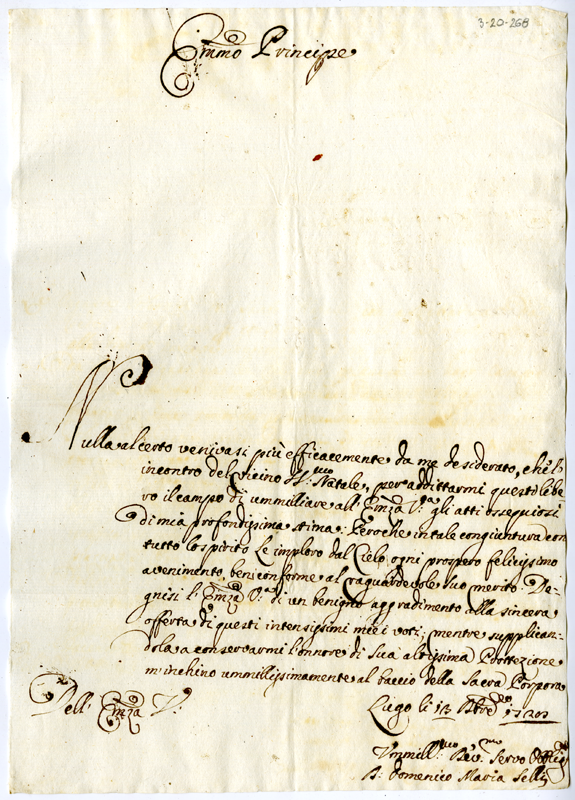 3-20-268
Emmo Principe
Nulla al certo venivasi più efficacemente da me desiderato, che l'
incontro del vicino SS.mo Natale, per addittarmi questi libe-
ro il campo di ummilliare all' Emza V.a gli atti ossequiosi
di mia profondissima stima: Peroche in tale congiuntura con
tutto lo spirito Le imploro dal Cielo ogni prospero felicissimo
avenimento, ben conforme al raguardevole suo merito. De-
gnisi l' Emza V.a di un benigno aggradimento alla sincera
offerta di questi intensissimi miei voti; mentre supplican-
dola a conservarmi l'onnore di Sua altissima Prottezione
m'inchino ummilissimamente al baccio della Sacra Porpora
Dell' Emza V.a
li 13
Ummill.mo Servo
Domenico Maria